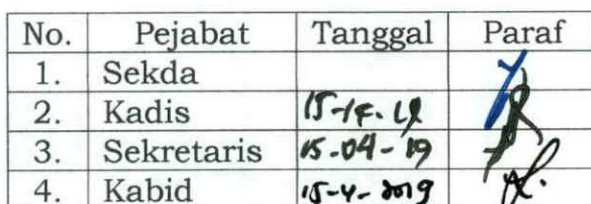 No. Pejabat Tanggal Paraf
1. Sekda
2. Kadis
3. Sekretaris 15-04-19
4. Kabid 15-4-2019